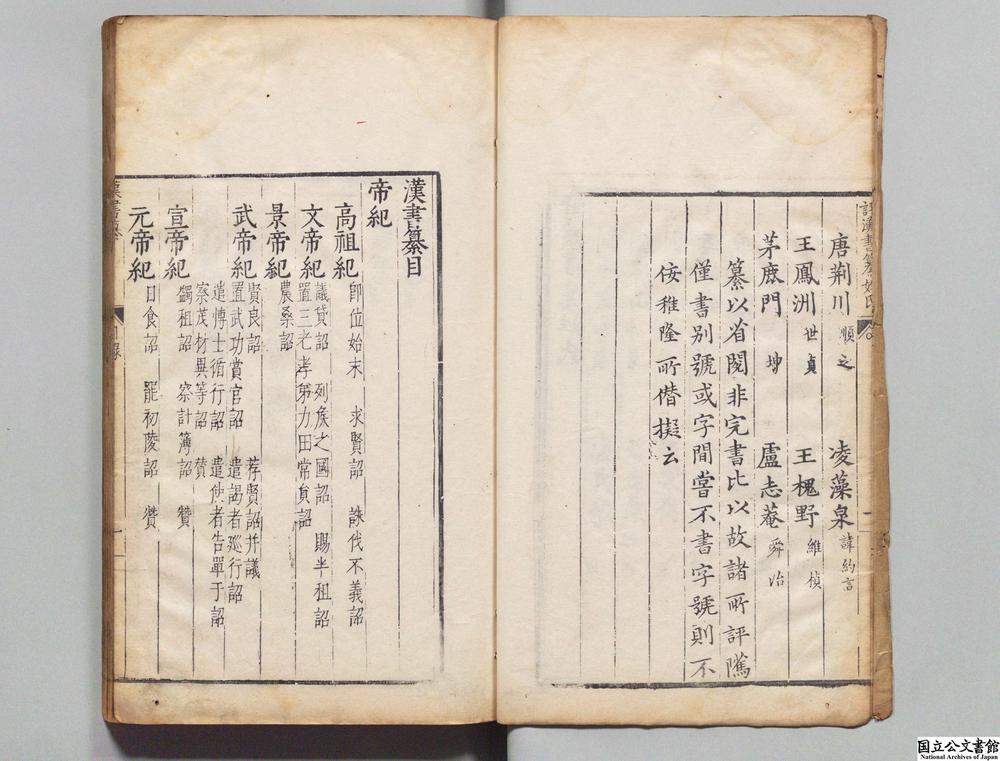 評漢書纂姓氏
唐荆川 順之 凌藻泉 諱約言
王鳳洲 世貞 王槐野 維楨
茅鹿門 坤 盧志菴 舜治
纂以省閱非完書比以故諸所評隲
僅書别號或字間嘗不書字號則不
佞稚隆所僭擬云
漢書纂目
帝紀
高祖紀 即位始末 求賢詔 誅伐不義詔
文帝紀 議貸詔 列侯之國詔 賜半租詔
置三老孝弟力田常員詔
景帝紀 農桑詔
武帝紀 賢良詔 荐賢詔并議
置武功賞官詔 遣謁者廵行詔
遣博士循行詔 遣使者告單于詔
察茂材異等詔 賛
宣帝紀 蠲租詔 察計簿詔 贊
元帝紀 日食詔 罷初陵詔 賛
漢書纂 目錄 一
国立公文書館
National Archives of Japan